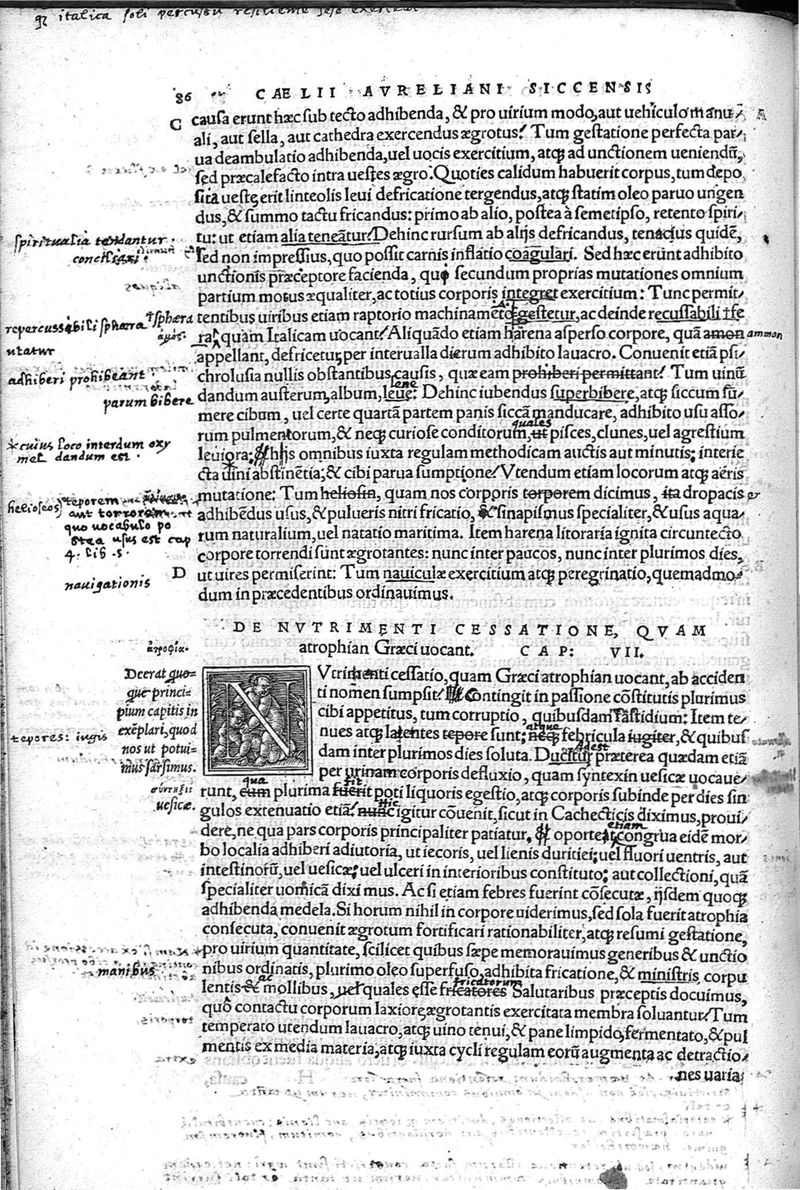 italica soli percussu resiliente sese exercitat
86 CAELII AVRELIANI SICCENSIS
C causa erunt hæc sub tecto adhibenda, & pro uirium modo, aut uehiculo manu
ali, aut sella, aut cathedra exercendus ægrotus. Tum gestatione perfecta par
ua deambulatio adhibenda, uel uocis exercitium, atq; ad unctionem ueniendū,
sed præcalefacto intra uestes ægro. Quoties calidum habuerit corpus, tum depo
sita ueste, erit linteolis leui defricatione tergendus, atq; statim oleo paruo ungen
dus, & summo tactu fricandus: primo ab alio, postea à semetipso, retento spiri
spiritualia tendantur.
tu: ut etiam alia teneātur. Dehinc rursum ab alijs defricandus, tenacius quidē,
sed non impressius, quo possit carnis inflatio coagulari. Sed hæc erūt adhibito
unctionis præceptore facienda, qui secundum proprias mutationes omnium
partium motus æqualiter, ac totius corporis integret exercitium: Tunc permit
sphæra
tentibus uiribus etiam raptorio machinamēto gestetur, ac deinde recussabili sfe
repercussibili sphæra
utatur
ra, quàm Italicam uocant. Aliquādo etiam harena asperso corpore, quā amon
ammon
appellant, defricetur, per interualla dierum adhibito lauacro. Conuenit etiā psi
adhiberi prohibeant
chrolusia nullis obstantibus causis, quæ eam prohiberi permittant. Tum uinū
lene
parum bibere
dandum austerum, album, leue: Dehinc iubendus superbibere, atq; siccum sū
mere cibum, uel certe quartā partem panis siccā manducare, adhibito usu asso
quales
rum pulmentorum, & neq; curiose conditorum, ut pisces, clunes, uel agrestium
cuius loco interdum oxy
mel dandum est.
leuiora: his omnibus iuxta regulam methodicam auctis aut minutis; interie
cta uini abstinētia; & cibi parua sumptione. Vtendum etiam locorum atq; aëris
helioseos
mutatione: Tum heliosin, quam nos corporis torporem dicimus, ita dropacis
teporem
aut torrorem
quo uocabulo po
stea usus est cap
4. lib. 5.
adhibēdus usus, & pulueris nitri fricatio, & sinapismus specialiter, & usus aqua
rum naturalium, uel natatio maritima. Item harena litoraria ignita circuntecto
corpore torrendi sunt ægrotantes: nunc inter paucos, nunc inter plurimos dies,
nauigationis
D ut uires permiserint: Tum nauiculæ exercitium atq; peregrinatio, quemadmo
dum in præcedentibus ordinauimus.
DE NVTRIMENTI CESSATIONE, QVAM
atrophian Græci uocant. CAP: VII.
ἀτροφία.
Deerat quo=
que princi=
pium capitis in
exēplari, quod
nos ut potui=
mus sarsimus.
tepores: ingis
NVtrimenti cessatio, quam Græci atrophian uocant, ab acciden
ti nomen sumpsit. Contingit in passione cōstitutis plurimus
cibi appetitus, tum corruptio, quibusdam fastidium: Item te
nues atq; latentes tepore sunt; neq; febricula iugiter, & quibus
dam inter plurimos dies soluta. Ducitur præterea quædam etiā
per urinam corporis defluxio, quam syntexin uesicæ uocaue
σύντηξις
uesicæ.
runt, cum plurima fuerit poti liquoris egestio, atq; corporis subinde per dies sin
gulos extenuatio etiā. nunc igitur cōuenit, sicut in Cachecticis diximus, proui
etiam
dere, ne qua pars corporis principaliter patiatur, oportet, congrua eidē mor
bo localia adhiberi adiutoria, ut iecoris, uel lienis duritiei; uel fluori uentris, aut
intestinorū, uel uesicæ; uel ulceri in interioribus constituto; aut collectioni, quā
specialiter uomicā diximus. Ac si etiam febres fuerint cōsecutæ, ijsdem quoq;
adhibenda medela. Si horum nihil in corpore uiderimus, sed sola fuerit atrophia
consecuta, conuenit ægrotum fortificari rationabiliter, atq; resumi gestatione,
pro uirium quantitate, scilicet quibus sæpe memorauimus generibus & unctio
manibus
nibus ordinatis, plurimo oleo superfuso, adhibita fricatione, & ministris corpu
ac
fricatorum
lentis & mollibus, uel quales esse fricatores Salutaribus præceptis docuimus,
quô contactu corporum laxiore ægrotantis exercitata membra soluantur. Tum
temperato utendum lauacro, atq; uino tenui, & pane limpido, fermentato, & pul
mentis ex media materia, atq; iuxta cycli regulam eorū augmenta ac detractio
nes uaria